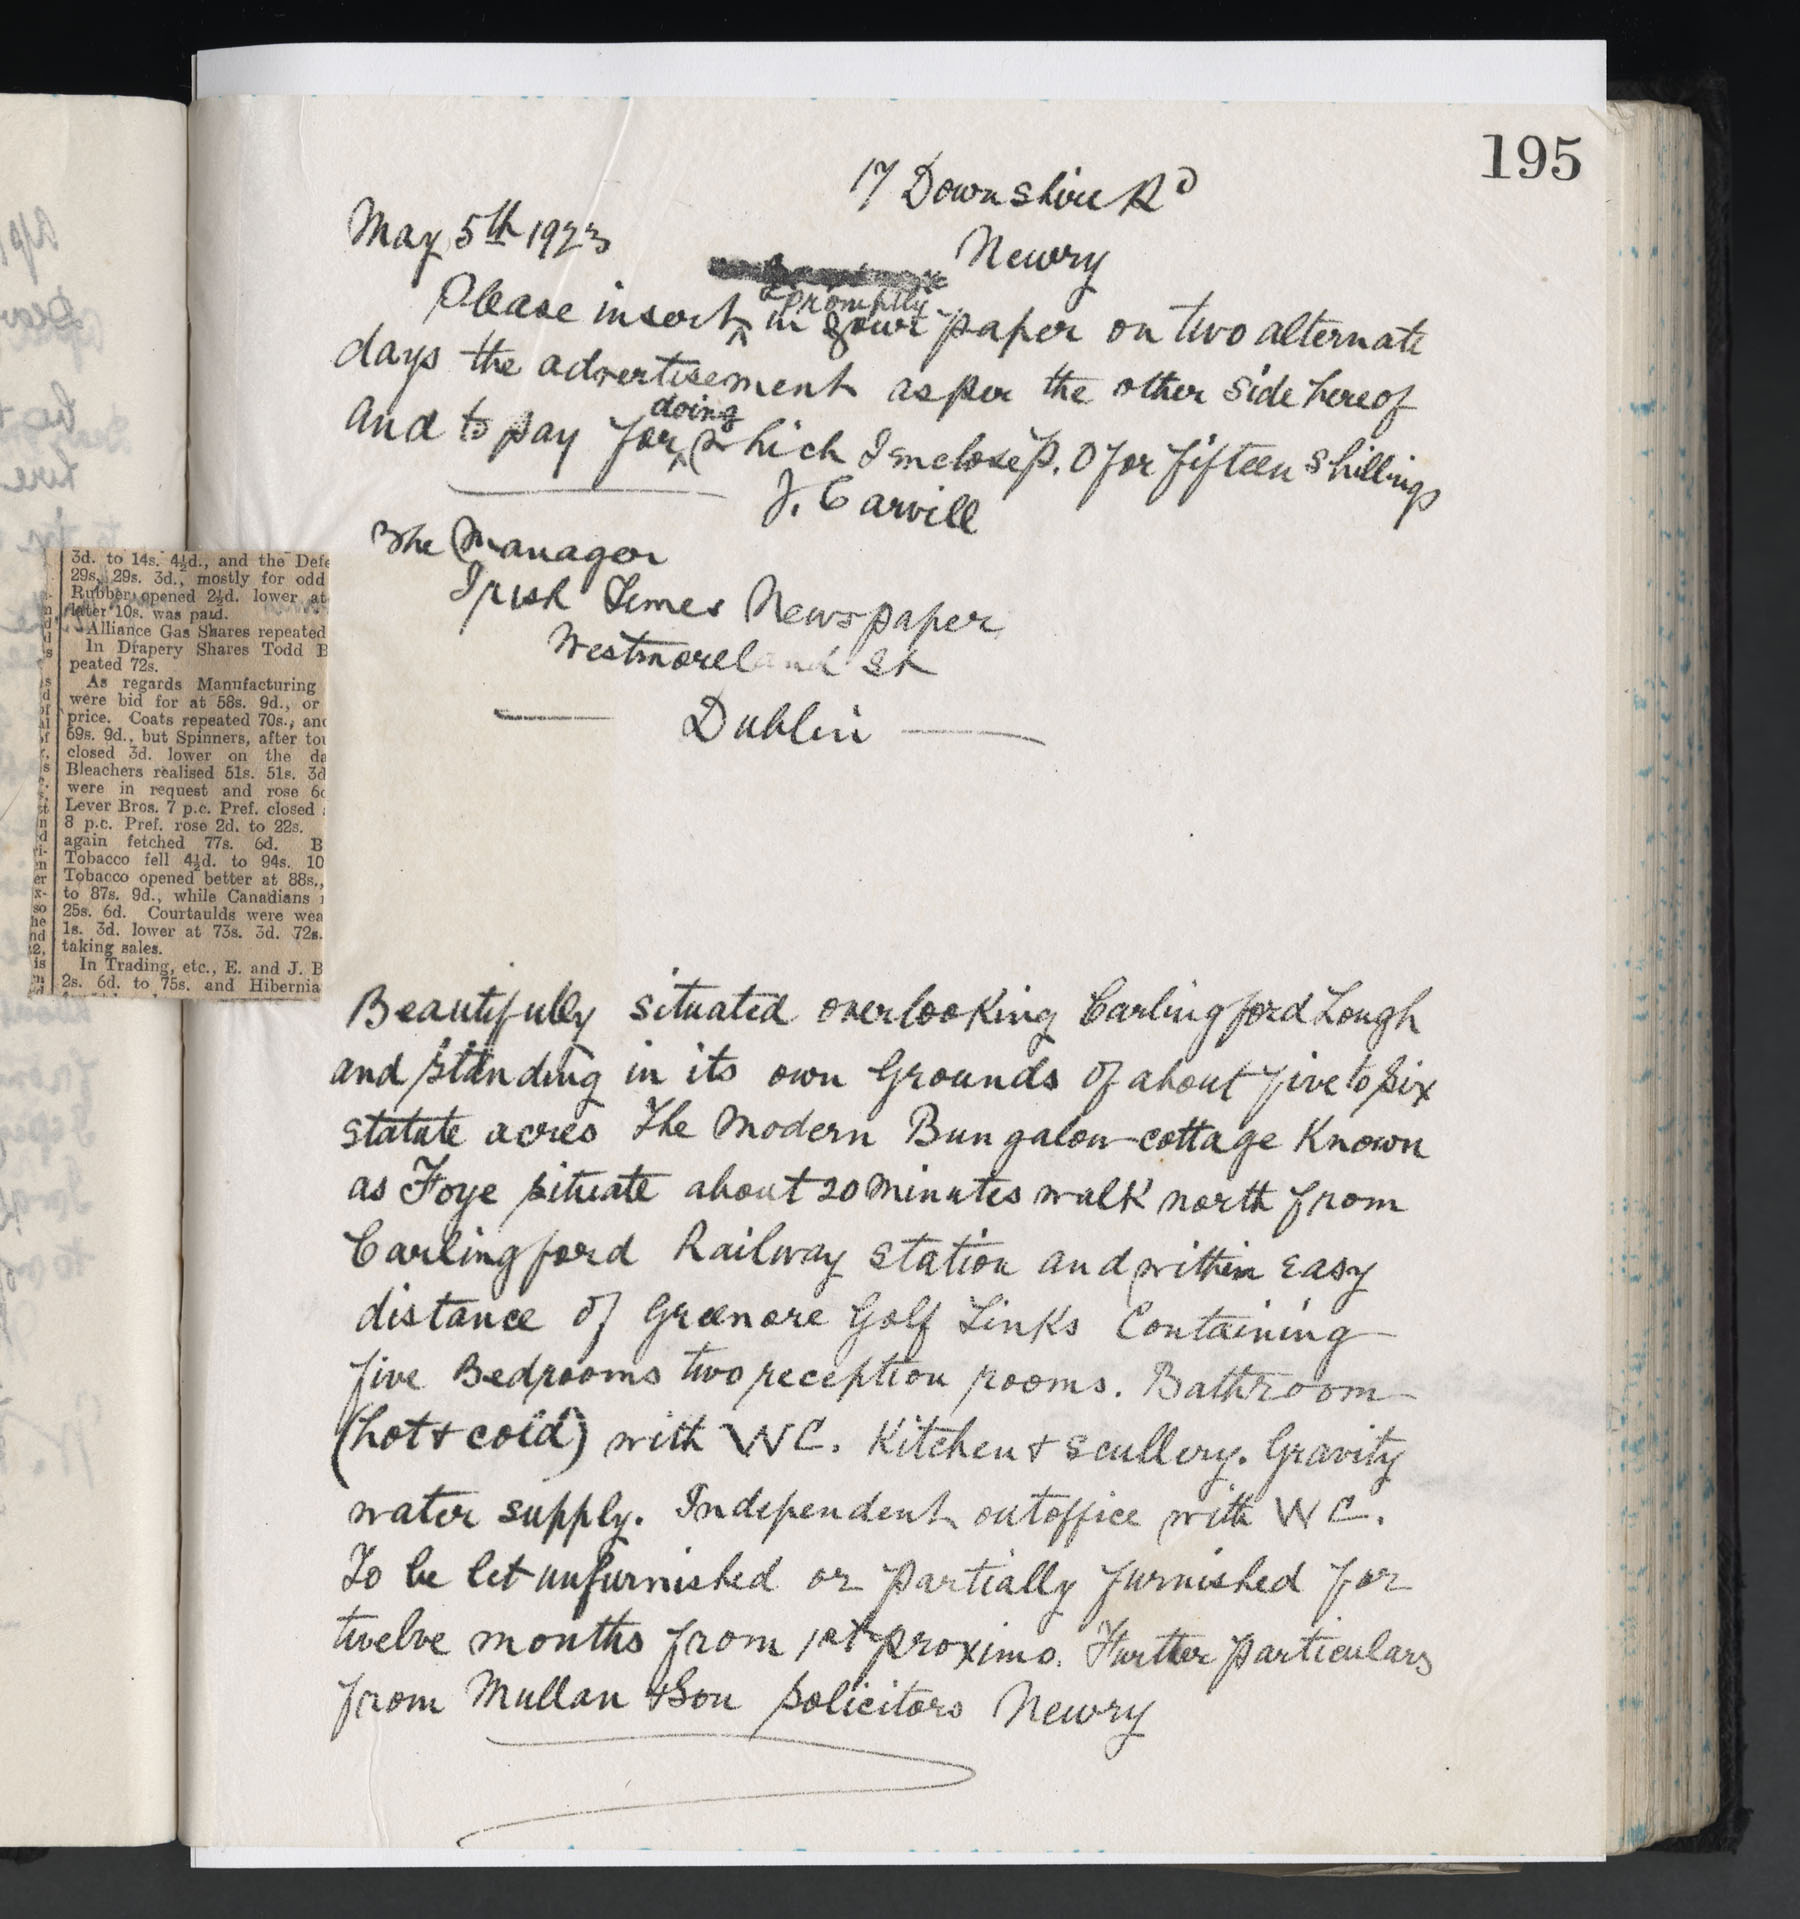 195
17 Downshire Rd
May 5th 1923
Newry
promptly
Please insert in your paper on two alternate
days the advertisement as per the other side hereof
doing
and to pay for which I enclose P.O for fifteen shillings
J. Carvill
The Manager
Irish Times Newspaper
Westmoreland St
Dublin
3d. to 14s. 4½d., and the Defe
29s, 29s. 3d., mostly for odd
Rubber opened 2½d. lower at
later 10s. was paid.
Alliance Gas Shares repeated
In Drapery Shares Todd B
peated 72s.
As regards Manufacturing
were bid for at 58s. 9d., or
price. Coats repeated 70s., and
69s. 9d., but Spinners, after tou
closed 3d. lower on the da
Bleachers realised 51s. 51s. 3d
were in request and rose 6d
Lever Bros. 7 p.c. Pref. closed
8 p.c. Pref. rose 2d. to 22s.
again fetched 77s. 6d. B
Tobacco fell 4½d. to 94s. 10
Tobacco opened better at 88s.,
to 87s. 9d., while Canadians
25s. 6d. Courtaulds were wea
1s. 3d. lower at 73s. 3d. 72s.
taking sales.
In Trading, etc., E. and J. B
2s. 6d. to 75s. and Hibernia
Beautifully situated overlooking Carlingford Lough
and standing in its own Grounds of about five to six
statute acres The Modern Bungalow-cottage Known
as Foye situate about 20 minutes walk north from
Carlingford Railway station and within easy
distance of Greenore Golf Links Containing
five Bedrooms two reception rooms. Bathroom
(hot & cold) with WC. Kitchen & scullery. Gravity
water supply. Independent outoffice with WC.
To be let unfurnished or partially furnished for
twelve months from 1st proximo. Further particulars
from Mullan & Son solicitors Newry